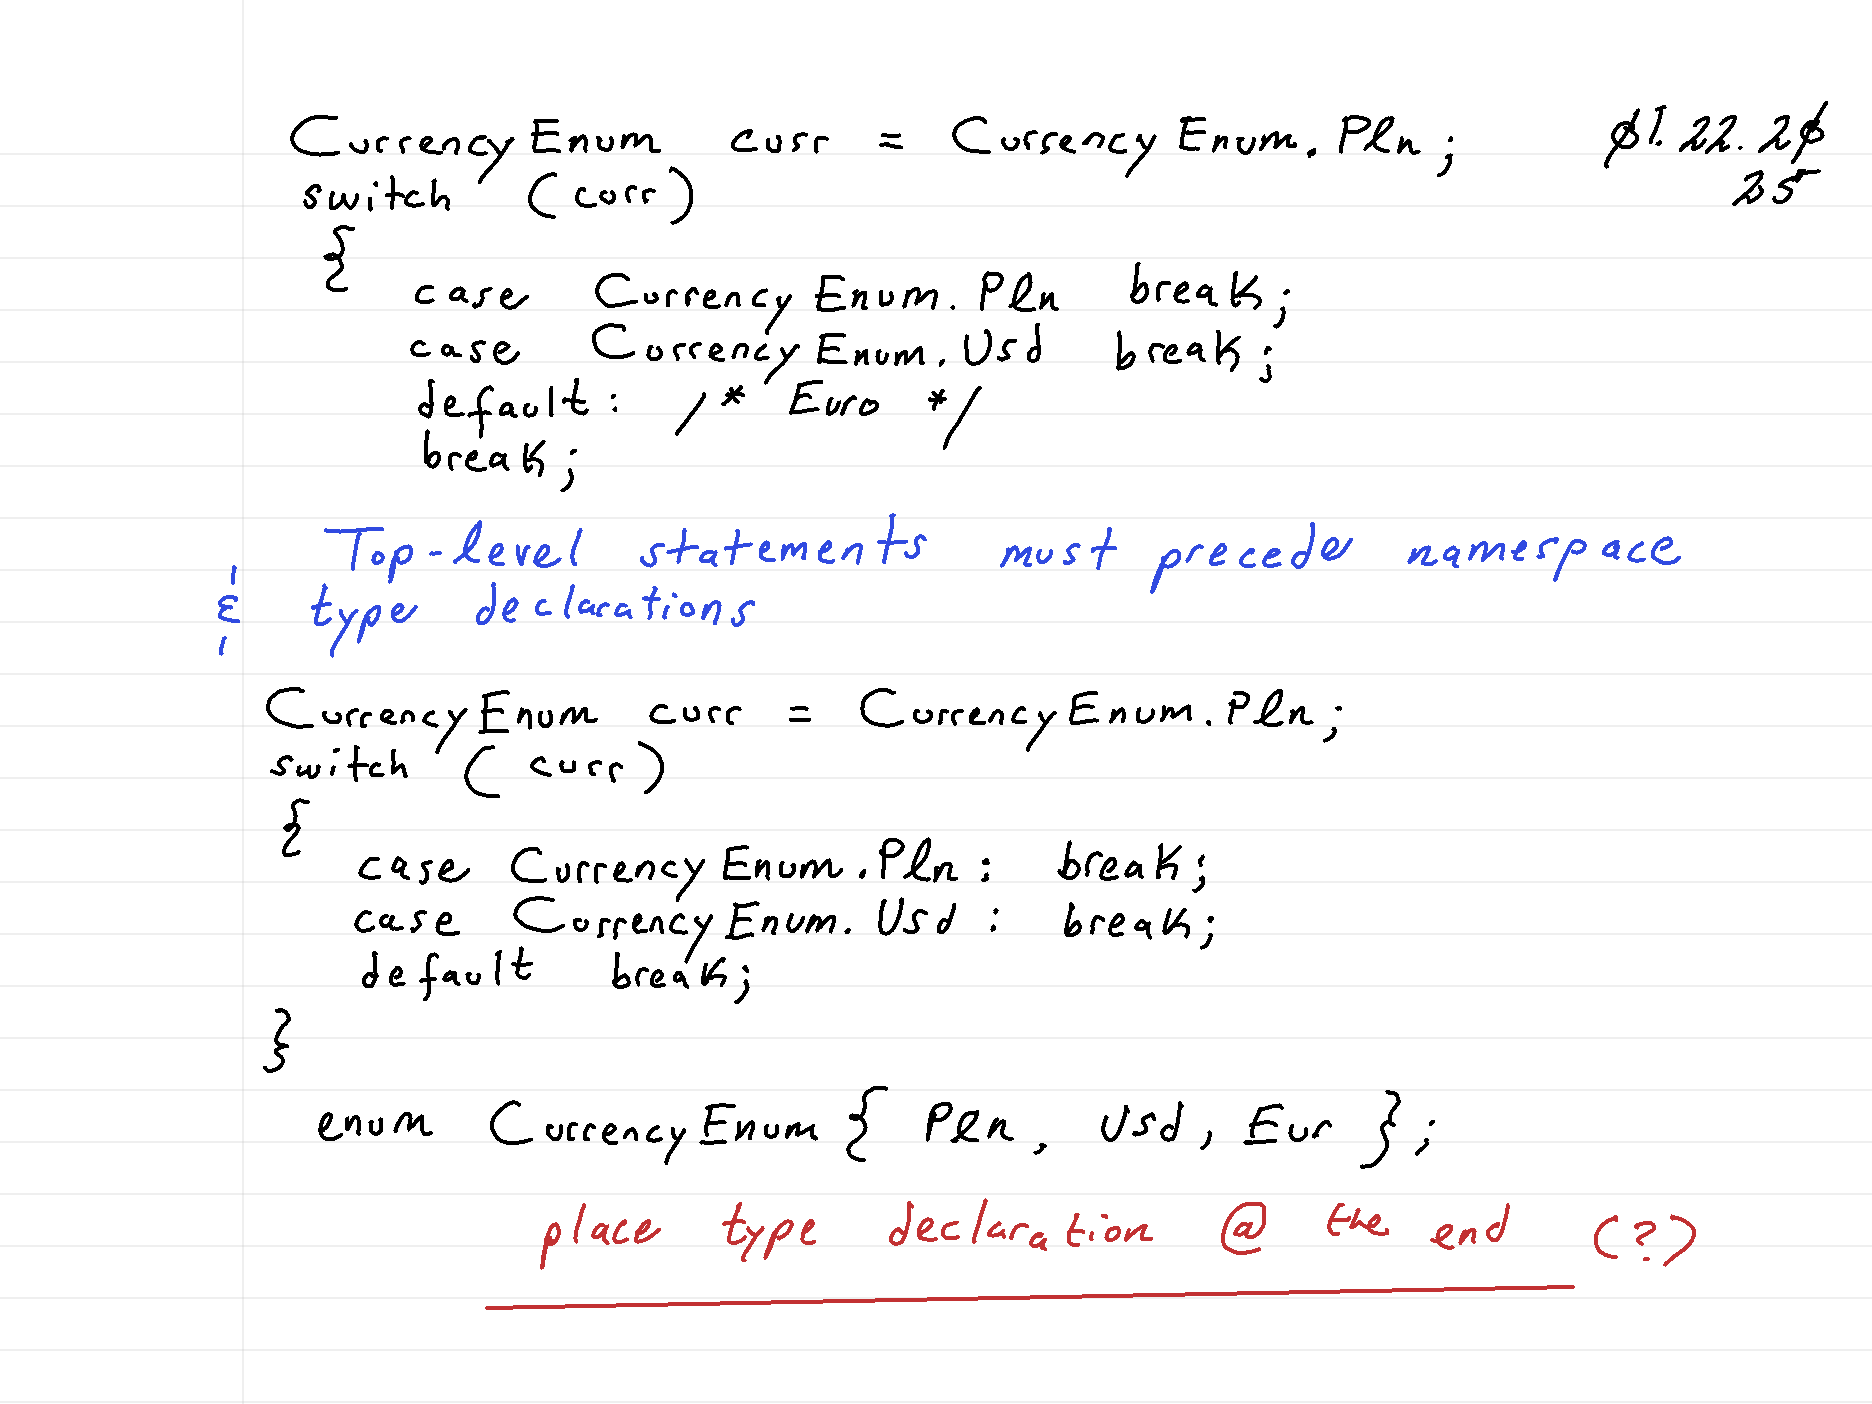 CurrencyEnum curr = CurrencyEnum.Pln; 01.22.20
25
switch (curr)
{
case CurrencyEnum.Pln break;
case CurrencyEnum.Usd break;
default: /* Euro */
break;
Top-level statements must precede namespace
& type declarations
CurrencyEnum curr = CurrencyEnum.Pln;
switch (curr)
{
case CurrencyEnum.Pln: break;
case CurrencyEnum.Usd: break;
default break;
}
enum CurrencyEnum { Pln, Usd, Eur };
place type declaration @ the end (?)